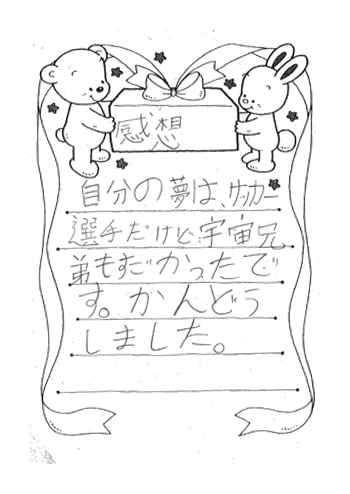 感想
自分の夢は、サッカー
選手だけど宇宙兄
弟もすごかったで
す。かんどう
しました。